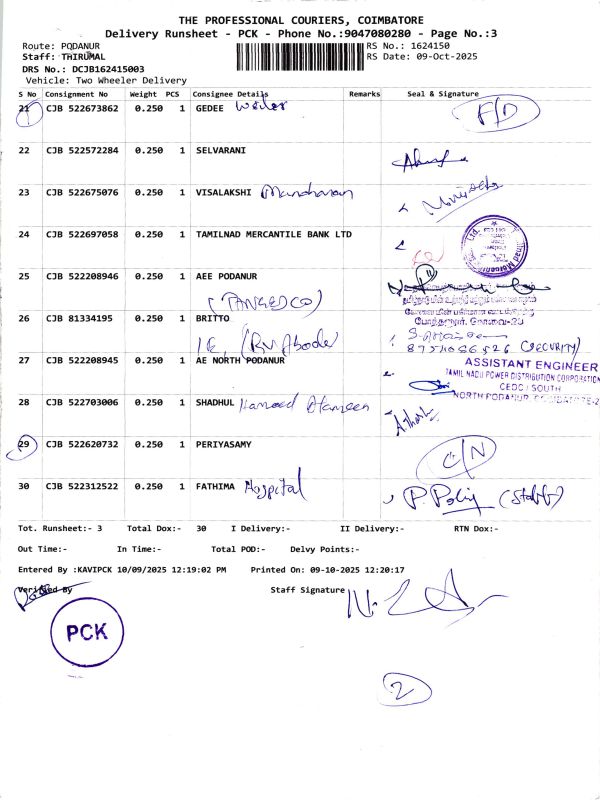 THE PROFESSIONAL COURIERS, COIMBATORE
Delivery Runsheet - PCK - Phone No.:9047080280 - Page No.:3
Route: PODANUR
RS No.: 1624150
Staff: THIRUMAL
RS Date: 09-Oct-2025
DRS No.: DCJB162415003
Vehicle: Two Wheeler Delivery
S No Consignment No Weight PCS Consignee Details Remarks Seal & Signature
21 CJB 522673862 0.250 1 GEDEE F/D
22 CJB 522572284 0.250 1 SELVARANI
23 CJB 522675076 0.250 1 VISALAKSHI Manoharan
24 CJB 522697058 0.250 1 TAMILNAD MERCANTILE BANK LTD
25 CJB 522208946 0.250 1 AEE PODANUR
(TANGEDCO)
26 CJB 81334195 0.250 1 BRITTO
போத்தனூர், கோவை-23
1E, (RV Abode)
8754086526 (SECURITY)
27 CJB 522208945 0.250 1 AE NORTH PODANUR
ASSISTANT ENGINEER
TAMIL NADU POWER DISTRIBUTION CORPORATION
CEDC / SOUTH
NORTH PODANUR,
28 CJB 522703006 0.250 1 SHADHUL Hameed
29 CJB 522620732 0.250 1 PERIYASAMY C/N
30 CJB 522312522 0.250 1 FATHIMA Hospital (Staff)
Tot. Runsheet:- 3 Total Dox:- 30 I Delivery:- II Delivery:- RTN Dox:-
Out Time:- In Time:- Total POD:- Delvy Points:-
Entered By :KAVIPCK 10/09/2025 12:19:02 PM Printed On: 09-10-2025 12:20:17
Verified By Staff Signature
PCK
2